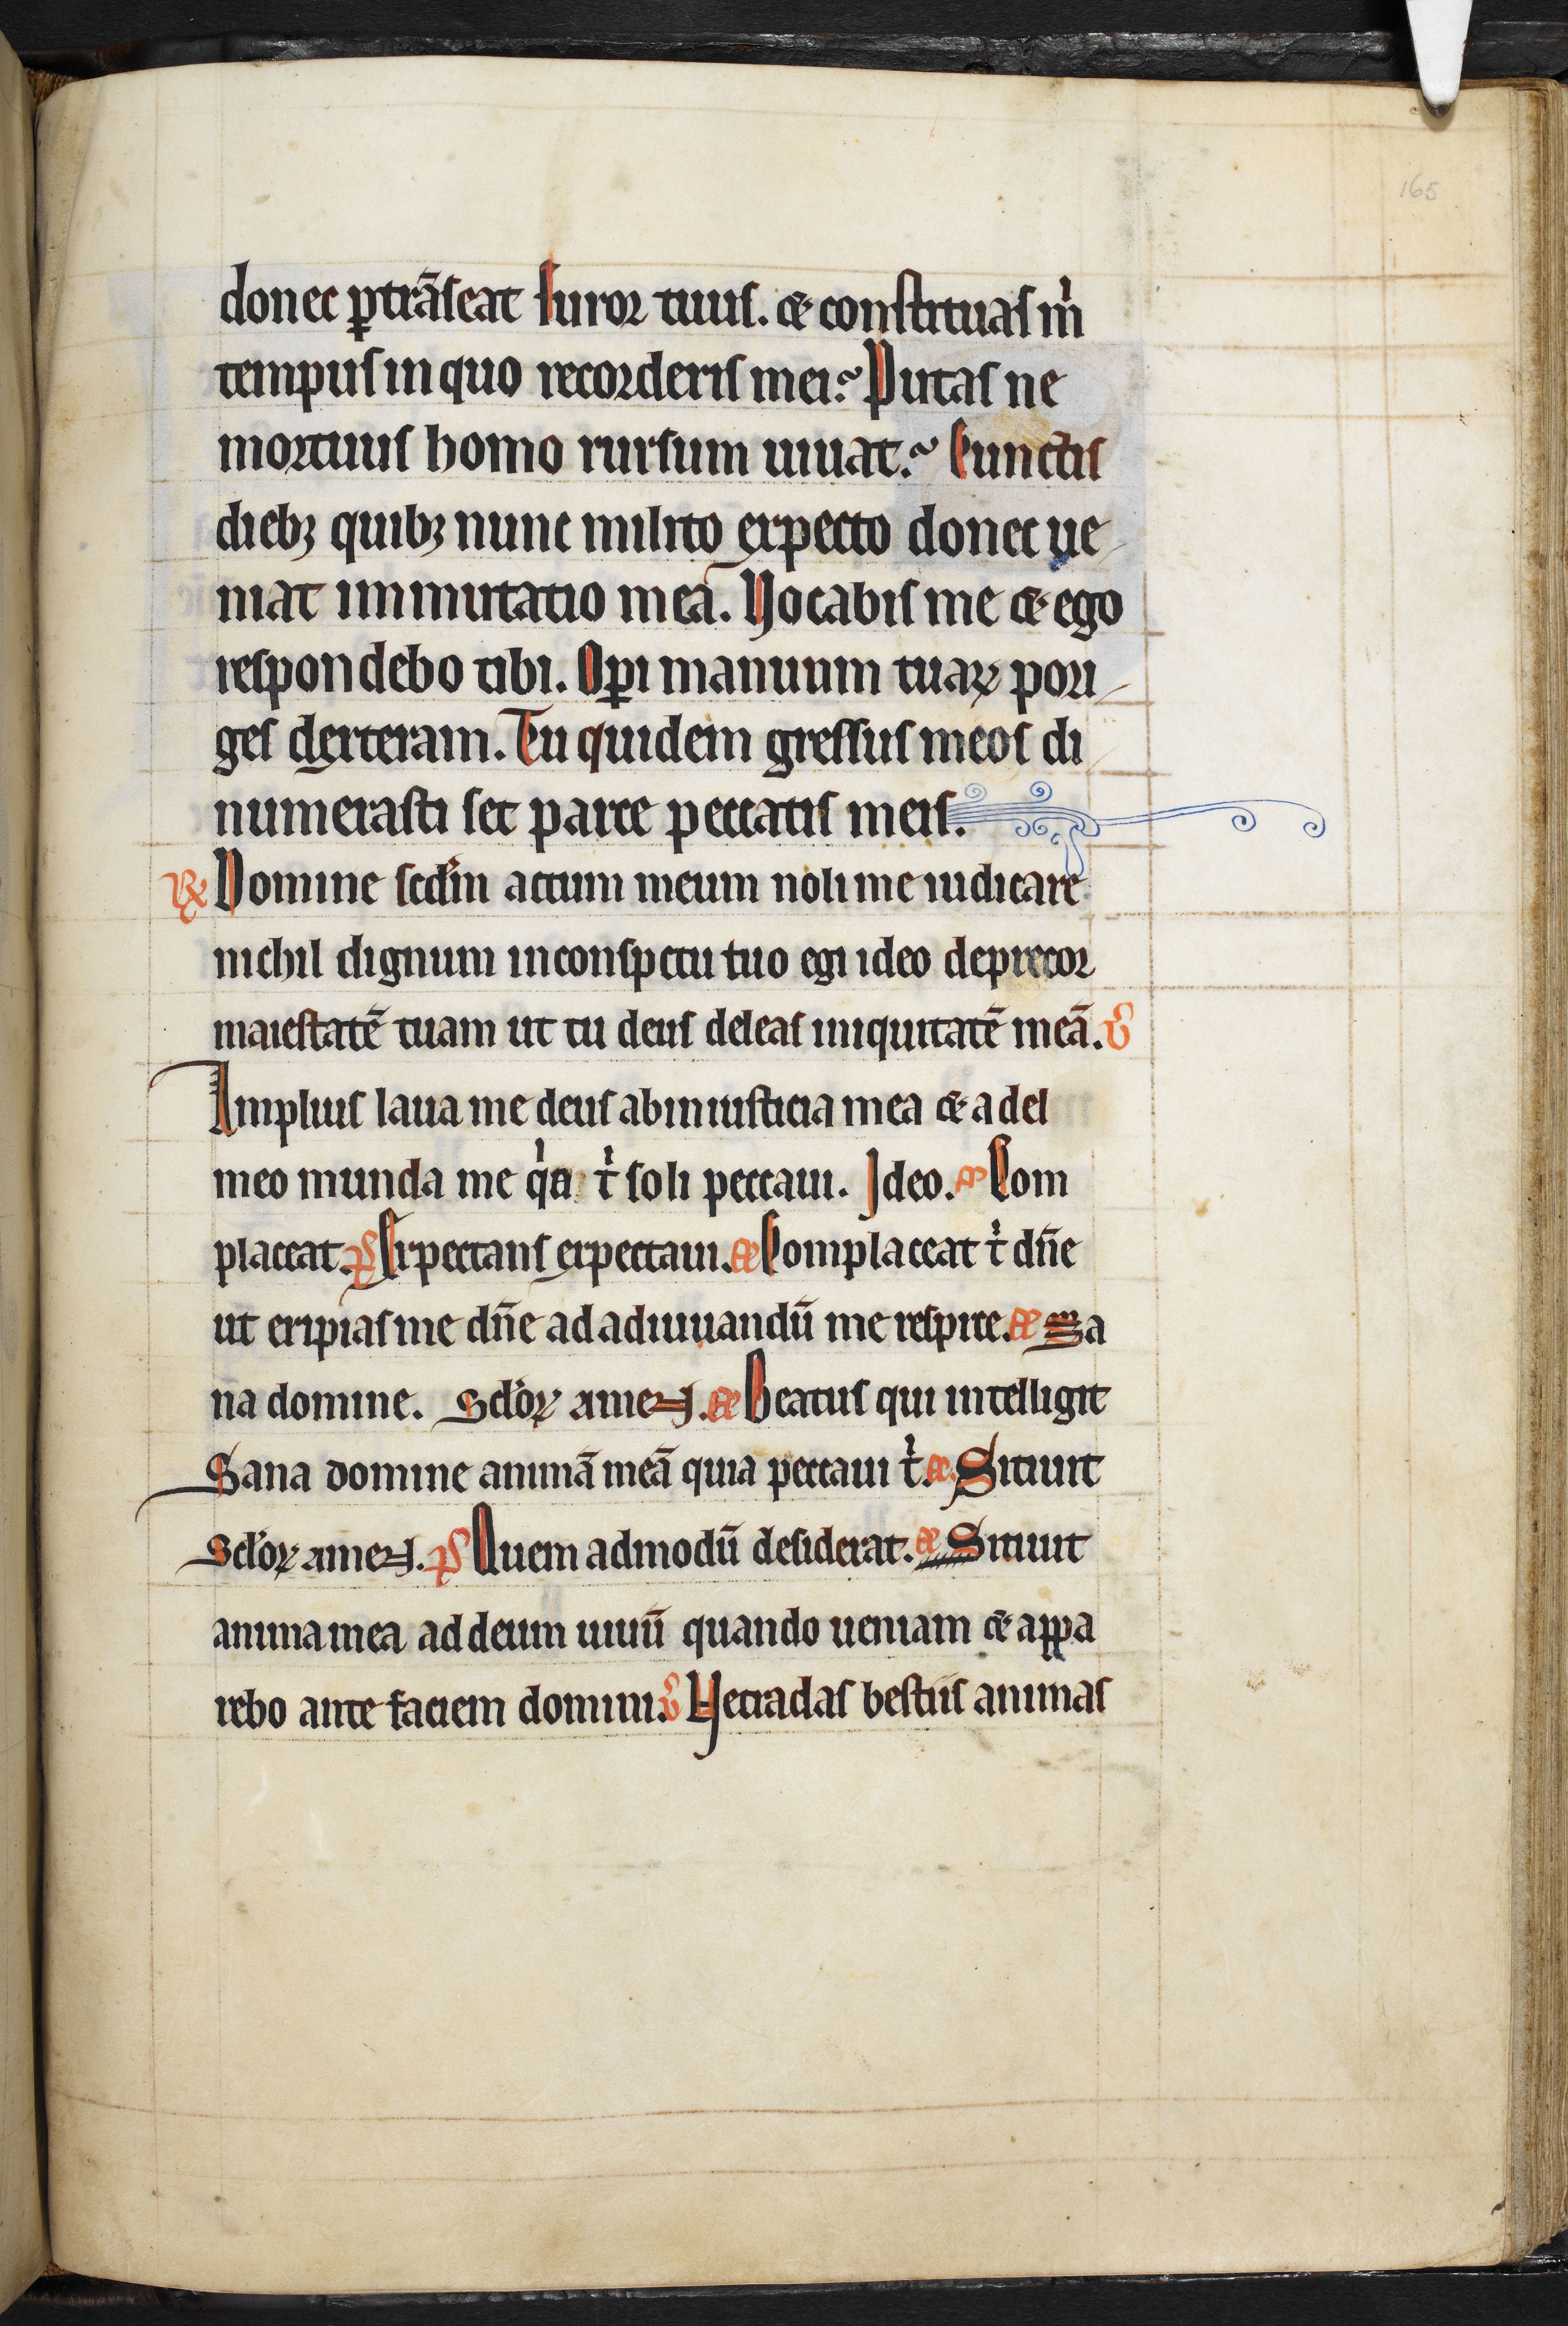 165
donec ꝑtrāseat furor tuus. & constituas m̍
tempus in quo recorderis mei? Putas ne
mortuus homo rursum uiuat? Cunctis
dieb; quib; nunc milito expecto donec ue
niat immutatio mea. Vocabis me & ego
respondebo tibi. Oꝑi manuum tuaꝝ pori
ges dexteram. Tu quidem gressus meos di
numerasti set parce peccatis meis.
℟ Domine scd̄m actum meum noli me iudicare
nichil dignum in conspectu tuo egi ideo deprecor
maiestatē tuam ut tu deus deleas iniquitatē meā. ℣
Amplius laua me deus ab iniusticia mea & a del
meo munda me q̍a t̍ soli peccaui. Ideo. A Com
placeat. P̄S Expectans expectaui. AE Complaceat t̍ dn̄e
ut eripias me dn̄e ad adiuuandū me respice. AE Sa
na domine. Scl̄oꝝ amen. AE Beatus qui intelligit
Sana domine animā meā quia peccaui t̍. AE. Sitiuit
Scl̄oꝝ amen. P̄S Quem admodū desiderat. AE Sitiuit
anima mea ad deum uiuū quando ueniam & appa
rebo ante faciem domini. ℣ Ne tradas bestiis animas